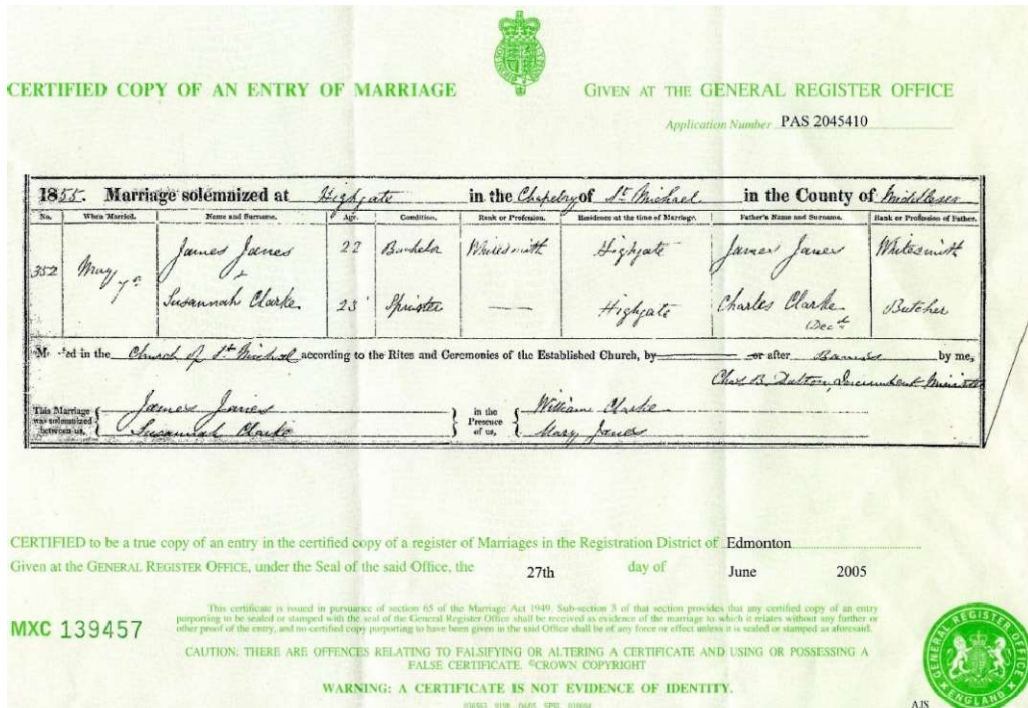 CERTIFIED COPY OF AN ENTRY OF MARRIAGE
GIVEN AT THE GENERAL REGISTER OFFICE
Application Number PAS 2045410
1855. Marriage solemnized at Highgate in the Chapelry of St. Michael in the County of Middlesex
No. When Married. Name and Surname. Age. Condition. Rank or Profession. Residence at the time of Marriage. Father's Name and Surname. Rank or Profession of Father.
352 May 7th
James Janes 22 Bachelor Whitesmith Highgate James Janes Whitesmith
&
Susannah Clarke 23 Spinster — Highgate Charles Clarke Butcher
Decd
Married in the Church of St. Michael according to the Rites and Ceremonies of the Established Church, by or after Banns by me,
Chas B. Dalton, Incumbent Minister
This Marriage was solemnized between us, James Janes Susannah Clarke in the Presence of us, William Clarke Mary Janes
CERTIFIED to be a true copy of an entry in the certified copy of a register of Marriages in the Registration District of Edmonton
Given at the GENERAL REGISTER OFFICE, under the Seal of the said Office, the 27th day of June 2005
MXC 139457
This certificate is issued in pursuance of section 65 of the Marriage Act 1949. Sub-section 3 of that section provides that any certified copy of an entry
purporting to be sealed or stamped with the seal of the General Register Office shall be received as evidence of the marriage to which it relates without any further or
other proof of the entry, and no certified copy purporting to have been given in the said Office shall be of any force or effect unless it is sealed or stamped as aforesaid.
CAUTION: THERE ARE OFFENCES RELATING TO FALSIFYING OR ALTERING A CERTIFICATE AND USING OR POSSESSING A
FALSE CERTIFICATE. ©CROWN COPYRIGHT
WARNING: A CERTIFICATE IS NOT EVIDENCE OF IDENTITY.
GENERAL REGISTER OFFICE
ENGLAND
AJS